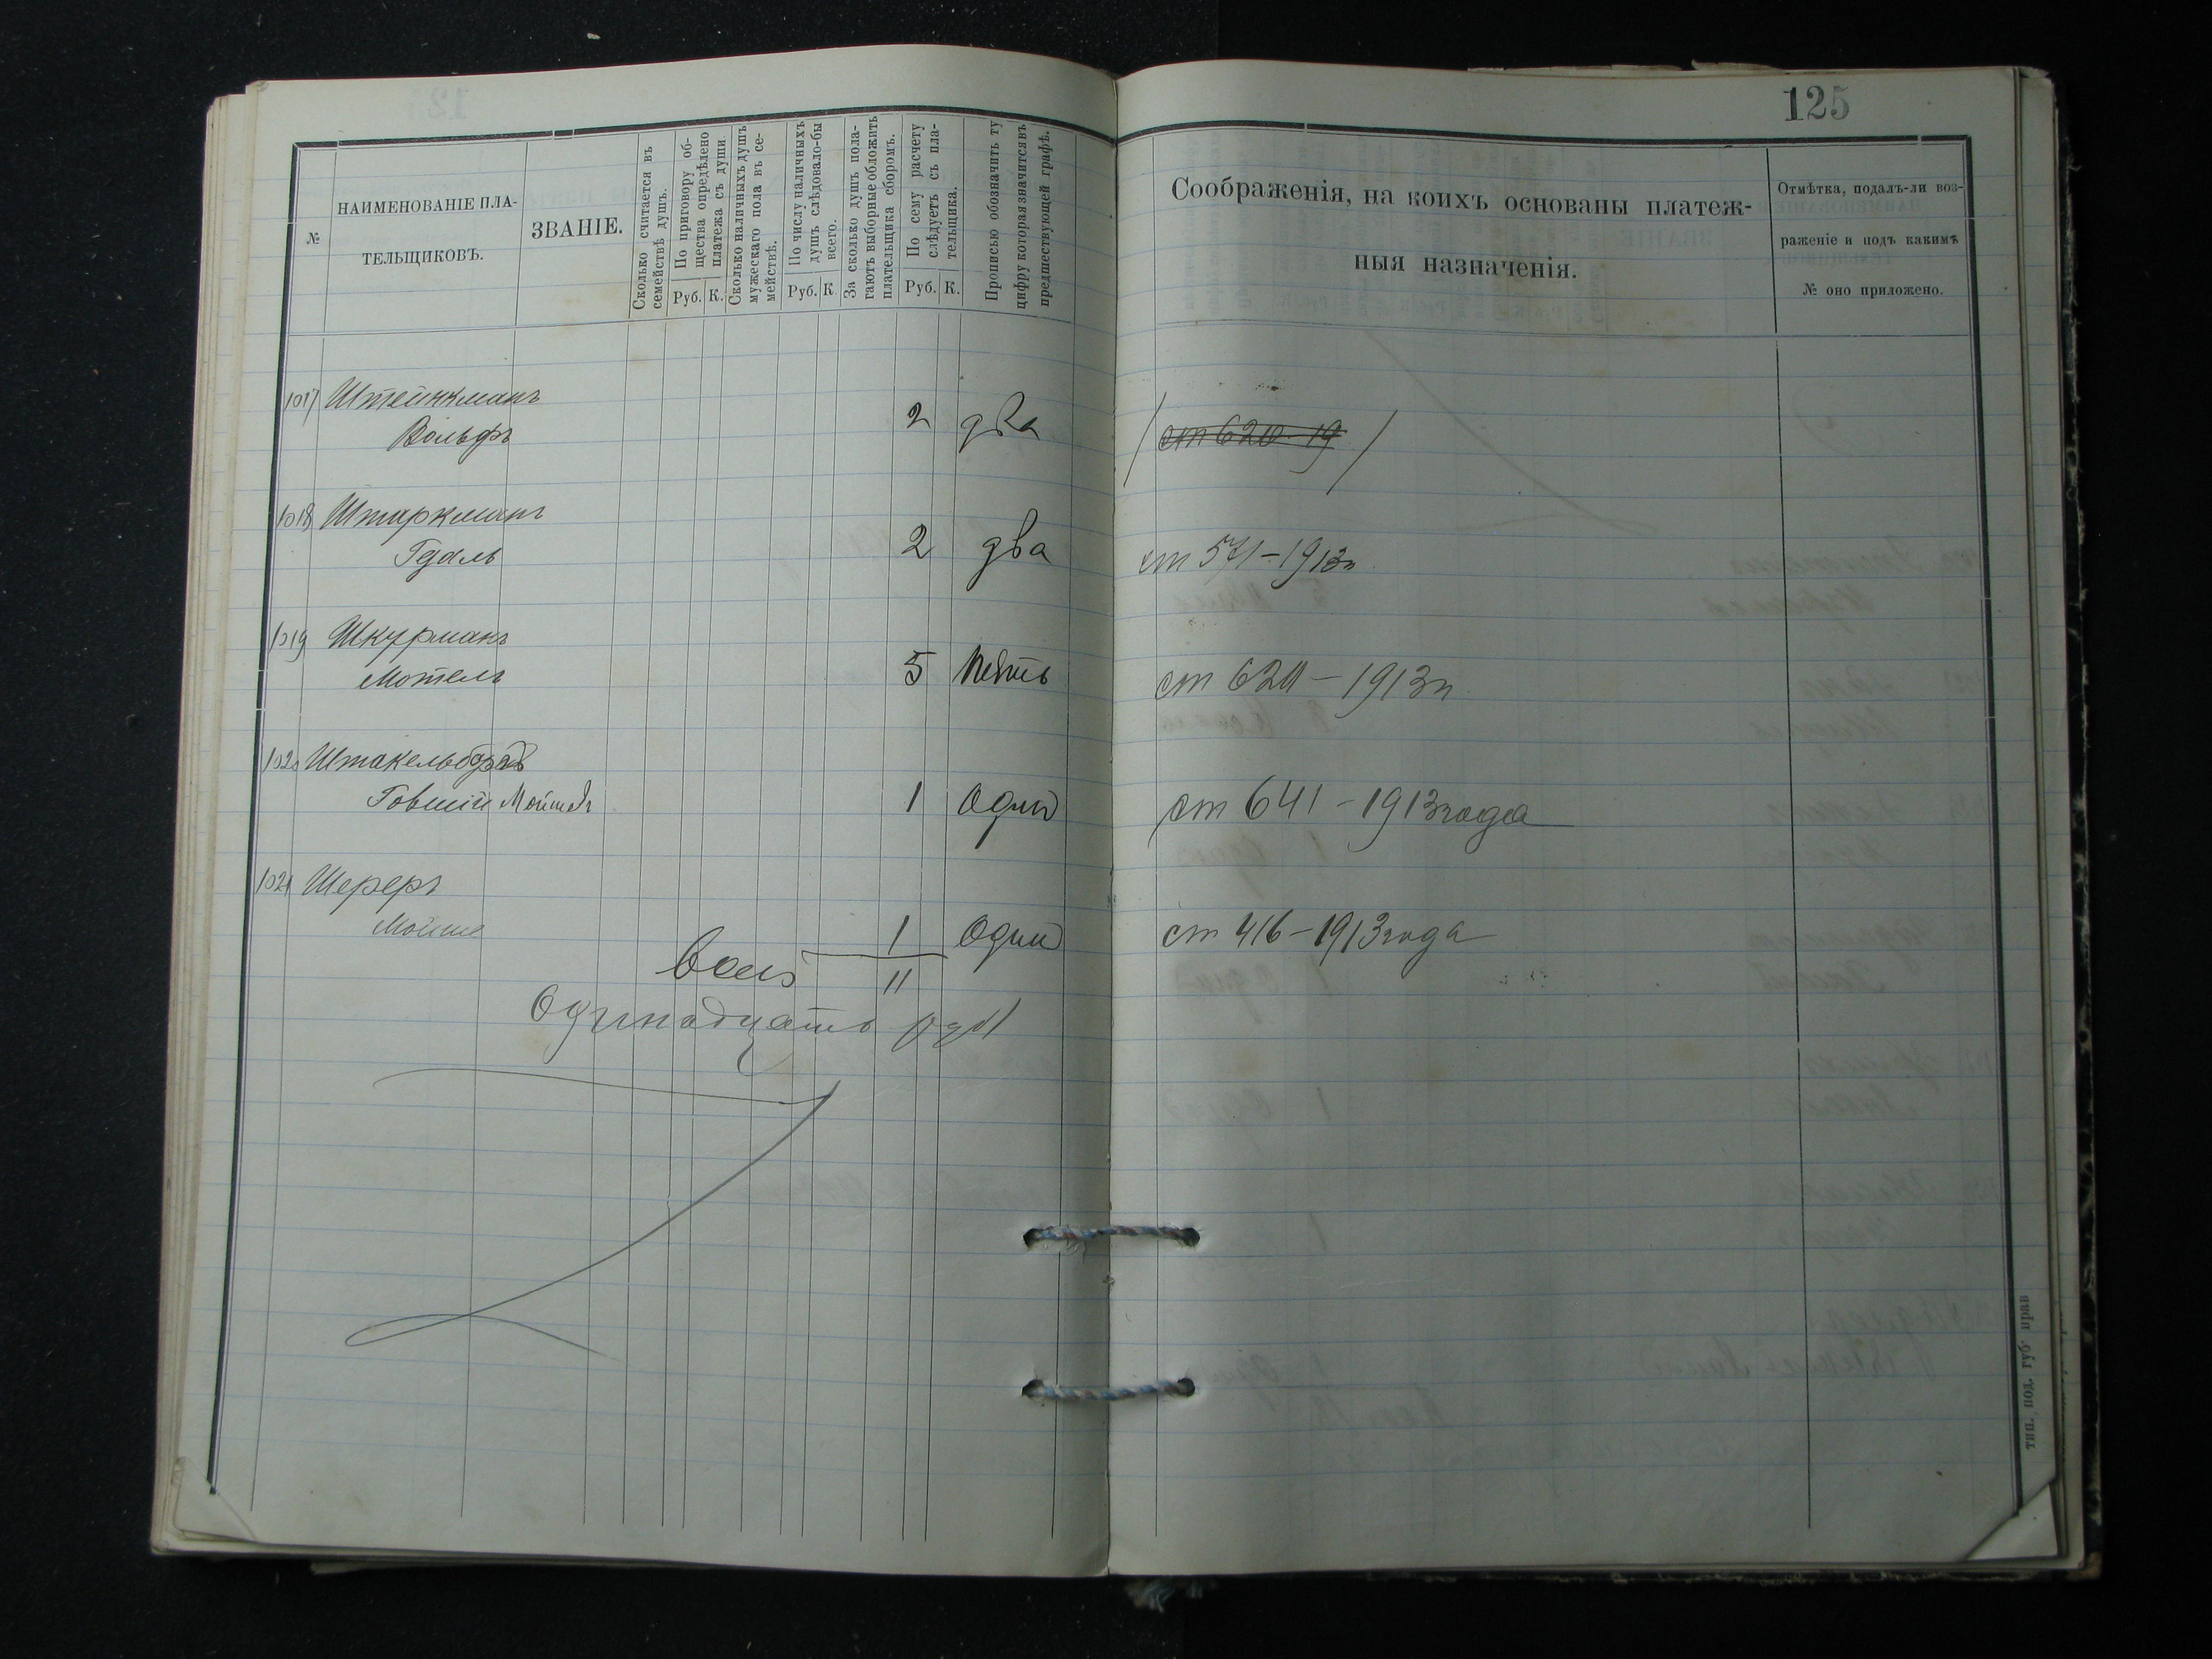 125
№
НАИМЕНОВАНІЕ ПЛА-
ТЕЛЬЩИКОВЪ.
ЗВАНІЕ.
Сколько считается въ
семействѣ душъ.
По приговору об-
щества опредѣлено
платежа съ души.
Руб. К.
Сколько наличныхъ душъ
мужескаго пола въ се-
мействѣ.
По числу наличныхъ
душъ слѣдовало-бы
всего.
Руб. К
За сколько душъ пола-
гаютъ выборные обложить
плательщика сборомъ.
По сему расчету
слѣдуетъ съ пла-
тельщика.
Руб. К.
Прописью обозначить ту
цифру которая значится въ
предшествующей графѣ.
Соображенія, на коихъ основаны платеж-
ныя назначенія.
Отмѣтка, подалъ-ли воз-
раженіе и подъ какимъ
№ оно приложено.
1017 Штейнкманъ
Вольфъ 2 два
ст 620-19
1018 Штаркманъ
Гдаль 2 два ст 571-1913г
1019 Шкурманъ
Мотель 5 пять ст 620-1913г
1020
Мойше 1 Один ст 641-1913года
1021 Шереръ
Мойше 1 Один ст 416-1913года
11
Одинадцать руб
тип. под. губ прав